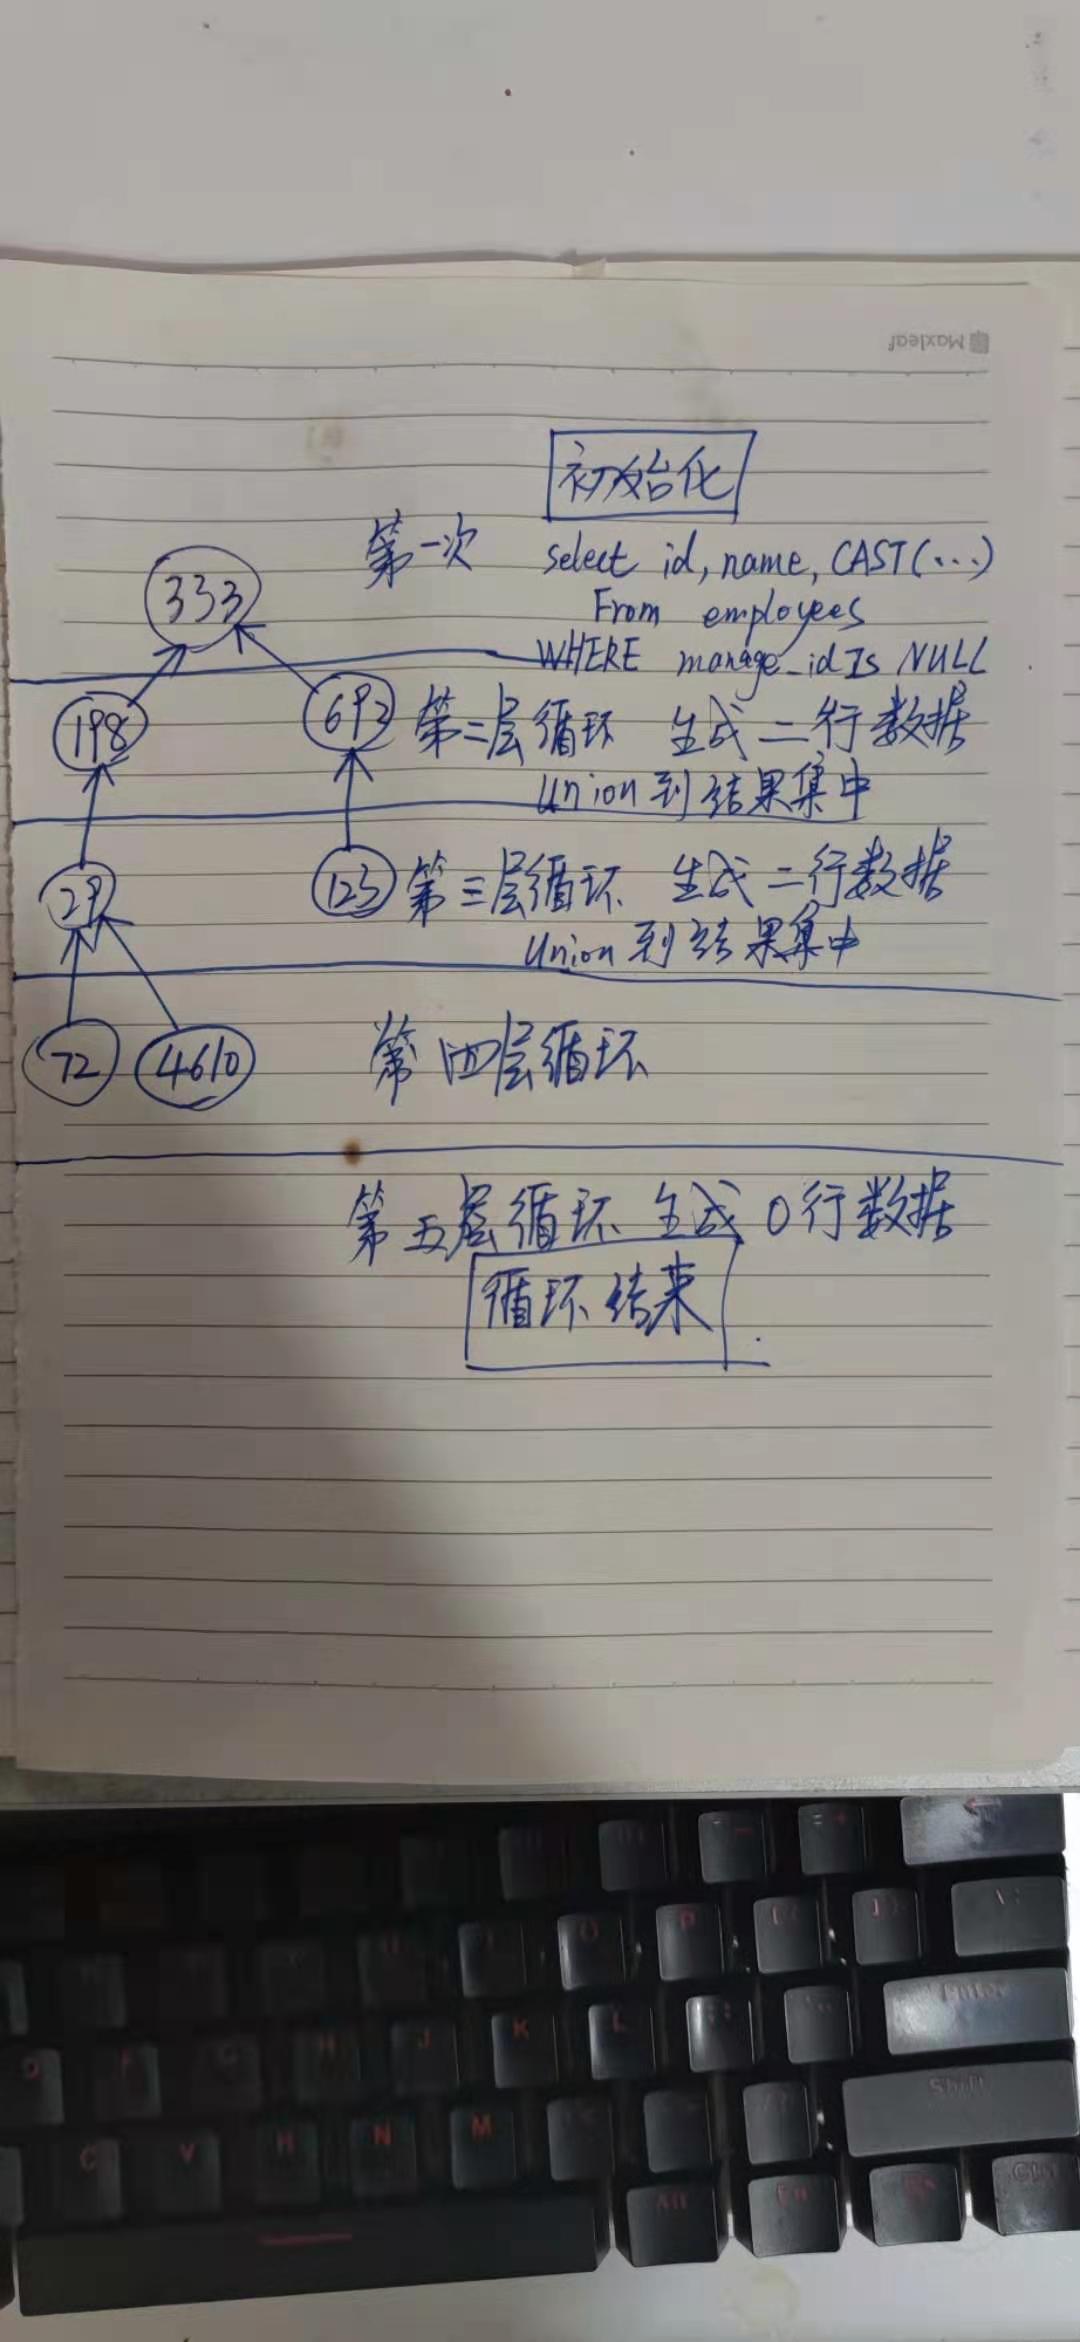 Maxleaf
初始化
第一次 select id, name, CAST(...)
From employees
WHERE manage_id Is NULL
333
198 692 第二层循环 生成二行数据
Union到结果集中
29 123 第三层循环 生成二行数据
Union到结果集中
72 4610 第四层循环
第五层循环 生成0行数据
循环结束
O P
J K L
Enter
Shift
C V N M
Alt Fn Ctrl